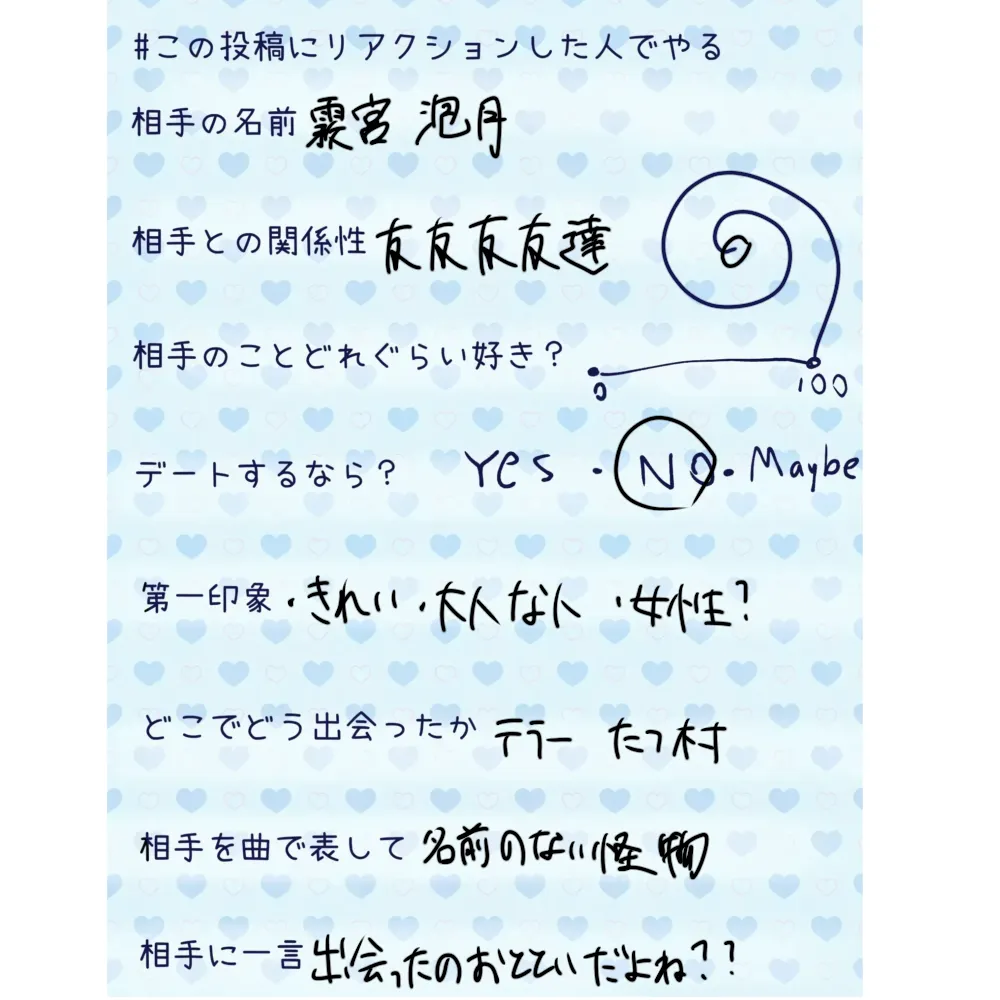 #この投稿にリアクションした人でやる
相手の名前 霖宮 泡月
相手との関係性 友友友友達
相手のことどれぐらい好き?
0 100
デートするなら? Yes ・ NO ・ Maybe
第一印象 ・きれい ・大人な人 ・女性?
どこでどう出会ったか テラー たつ村
相手を曲で表して 名前のない怪物
相手に一言 出会ったのおとといだよね??